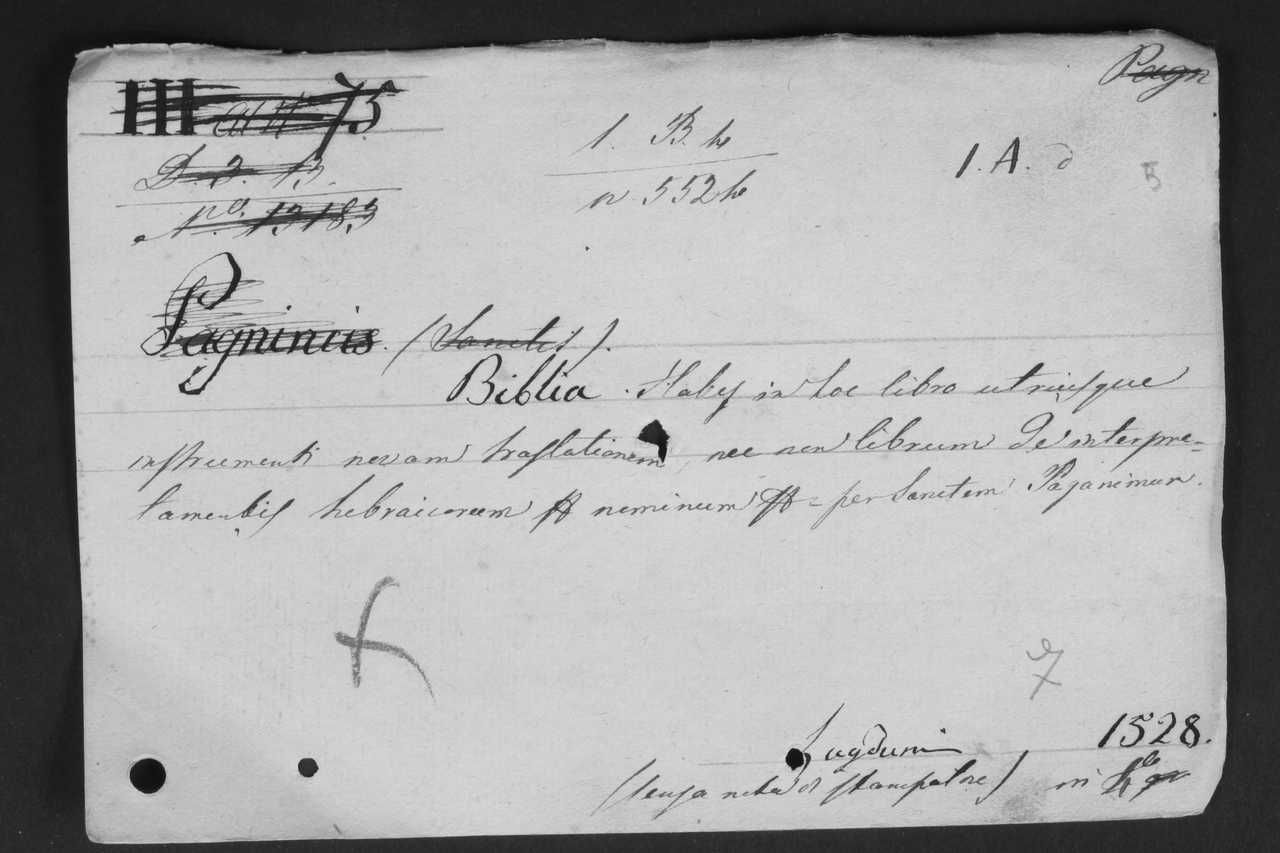 Pagn
III 75
D. 2. 13.
1. B. ho
1. A. d
B
n 552 ho
N.o 13183
Pagninus. (Sanctis).
Biblia. Habes in hoc libro utriusque
instrumenti novam traslationem, nec non librum de interpre=
tamentis hebraicorum nominum per Sanctem Paganinum.
Lugduni 1528.
(senza nota di stampatore) in